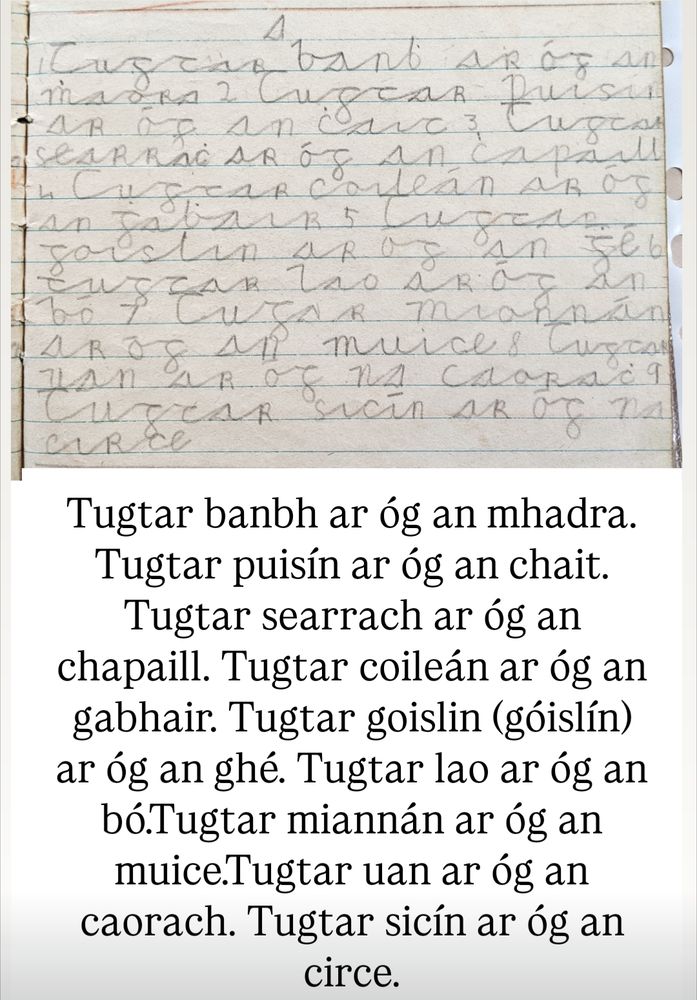 A
1 Tugtar banb ar óg an
ṁadra 2 Tugtar Puisín
ar óg an ċait 3 Tugtar
searraċ ar óg an ċapaill
4 Tugtar coileán ar óg
an gabair 5 Tugtar
goislin ar óg an ġé 6
tugtar lao ar óg an
bó 7 Tugar mionnán
ar óg an muice 8 Tugtar
uan ar óg na caoraċ 9
Tugtar sicín ar óg na
circe
Tugtar banbh ar óg an mhadra.
Tugtar puisín ar óg an chait.
Tugtar searrach ar óg an
chapaill. Tugtar coileán ar óg an
gabhair. Tugtar goislin (góislín)
ar óg an ghé. Tugtar lao ar óg an
bó.Tugtar miannán ar óg an
muice.Tugtar uan ar óg an
caorach. Tugtar sicín ar óg an
circe.